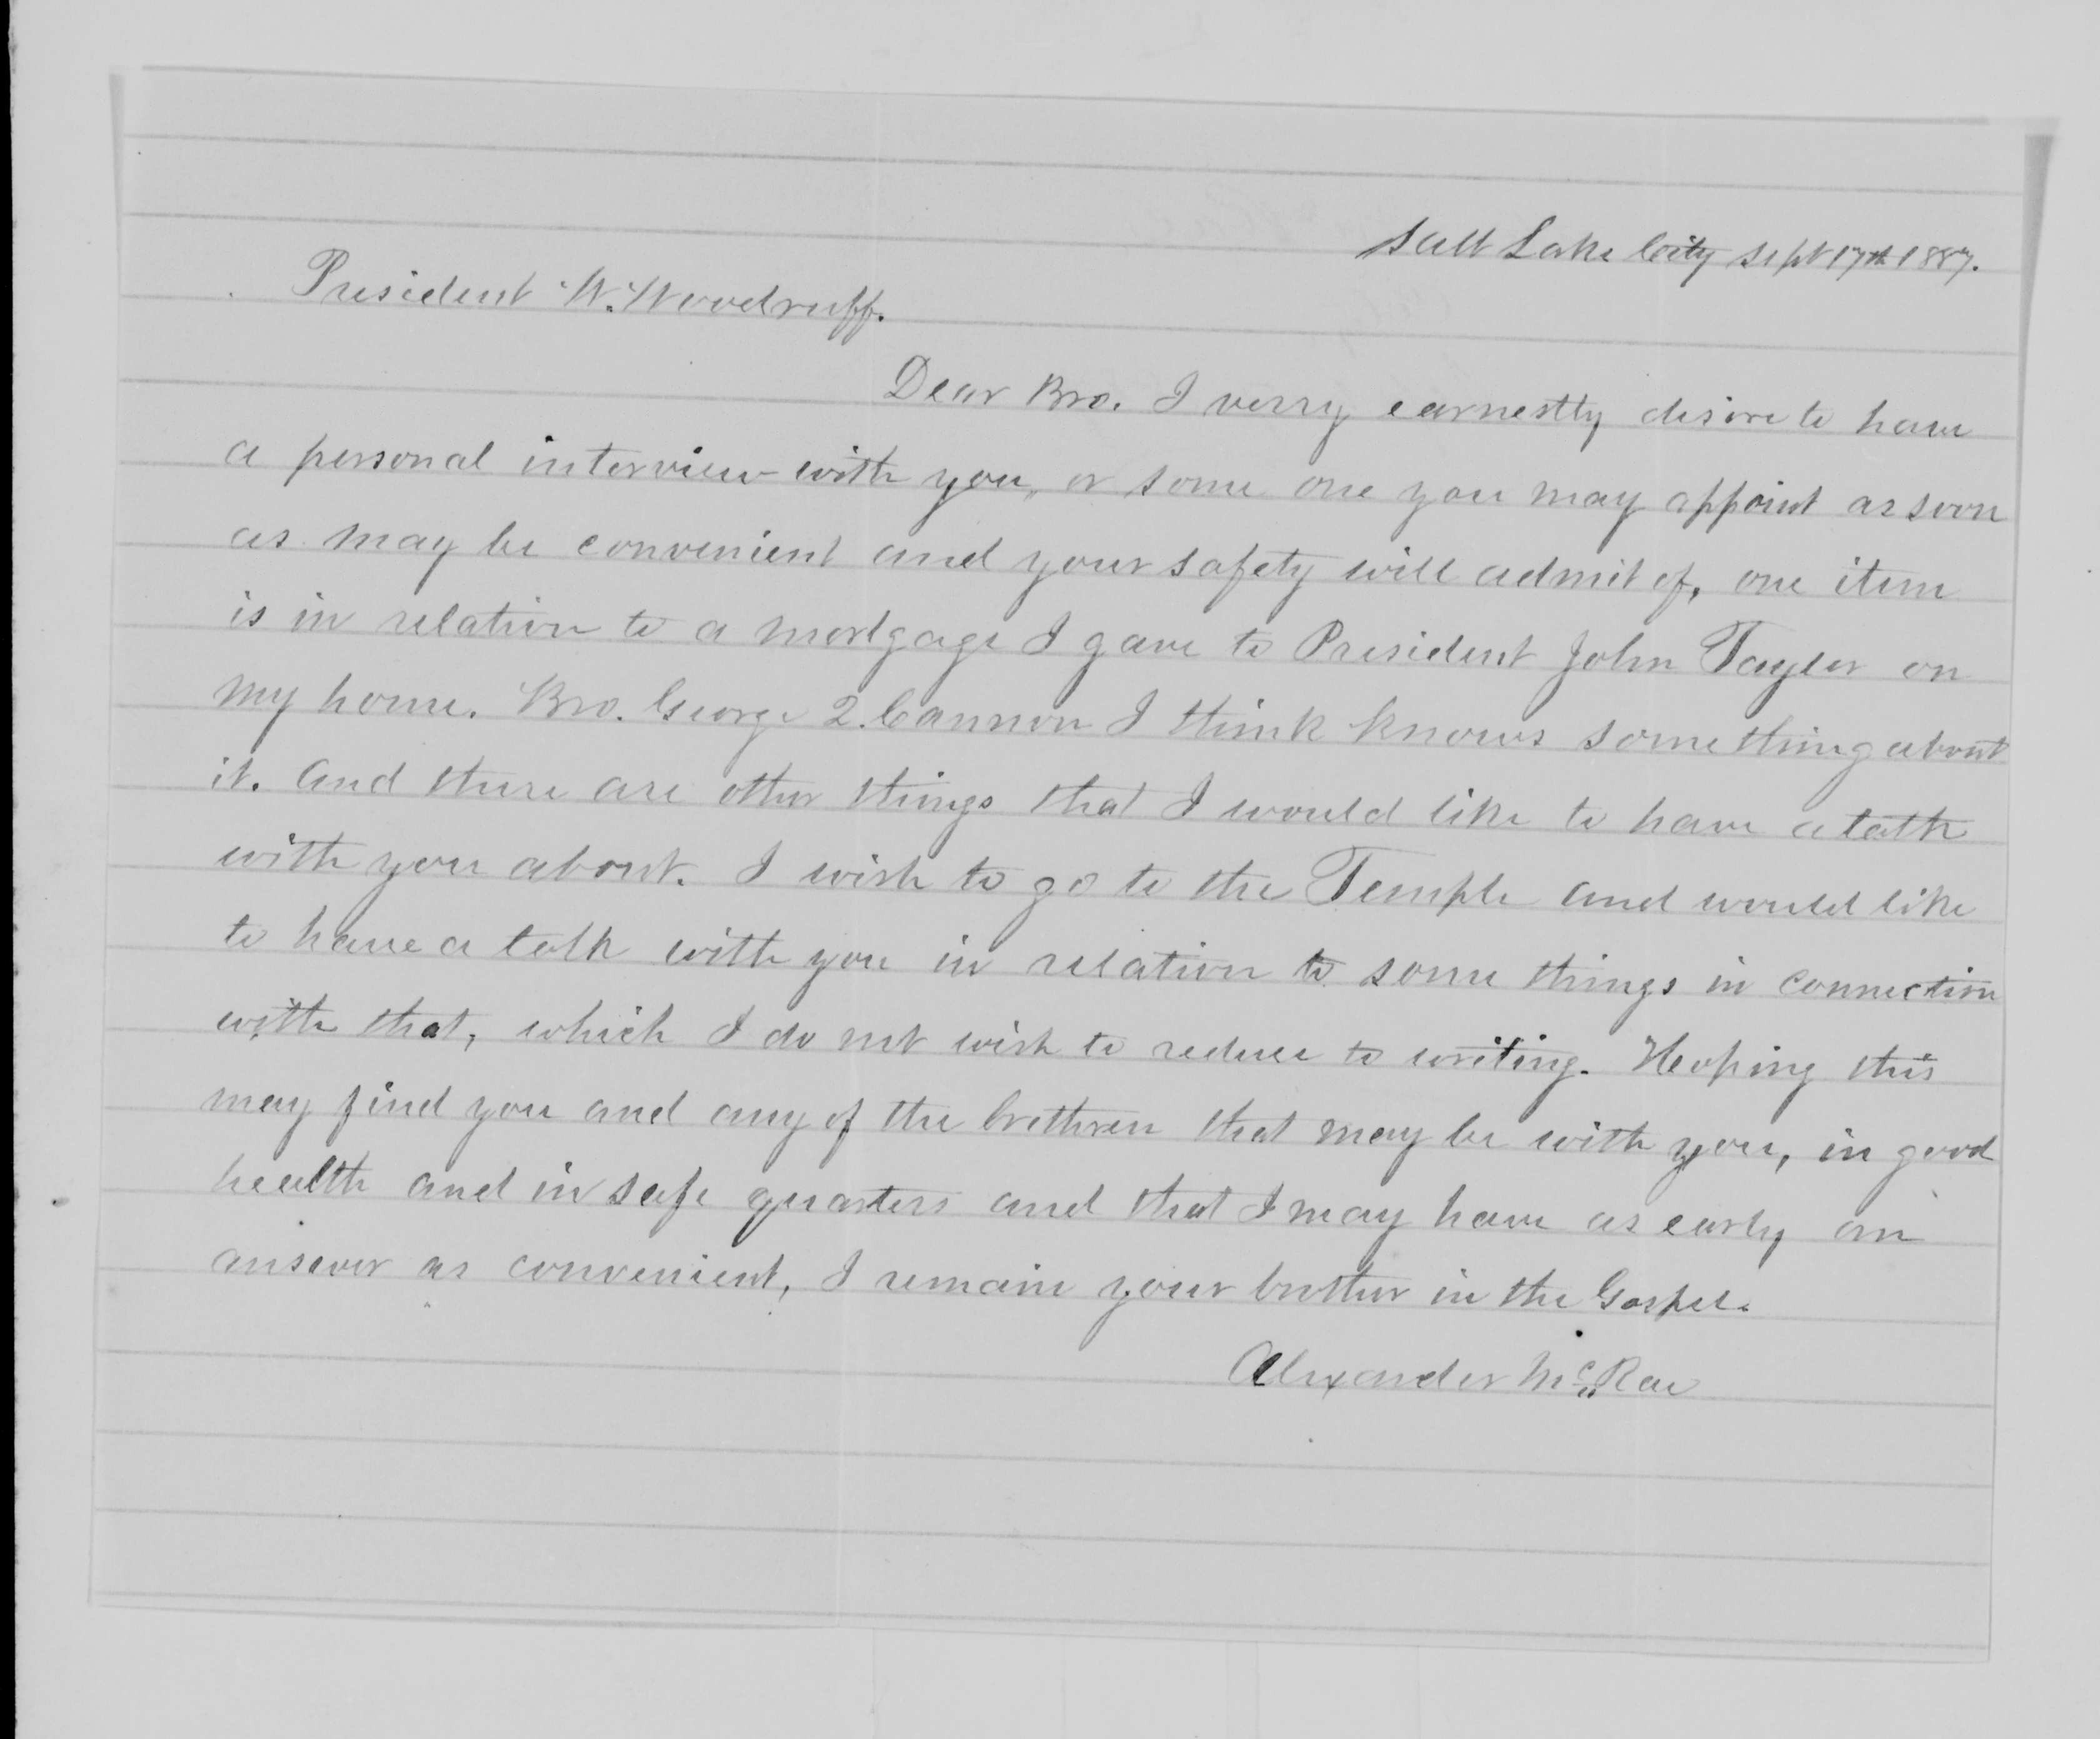 Salt Lake City Sept 17th 1887.
President W. Woodruff.
Dear Bro. I verry earnestly desire to have
a personal interview with you, or some one you may appoint as soon
as may be convenient and your safety will admit of, one item
is in relation to a mortgage I gave to President John Taylor on
my home. Bro. George Q. Cannon I think knows something about
it. And there are other things that I would like to have a talk
with you about. I wish to go to the Temple and would like
to have a talk with you in relation to some things in connection
with that, which I do not wish to reduce to writing. Hoping this
may find you and any of the brethren that may be with you, in good
health and in safe quarters and that I may have as early an
answer as convenient, I remain your brother in the Gospel.
Alexander McRae